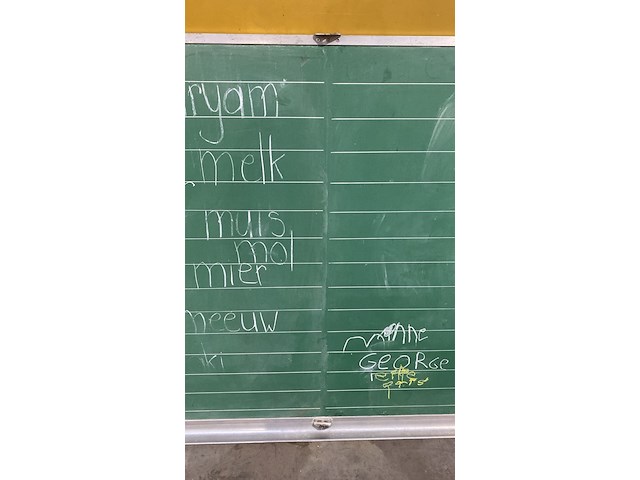 ryam
melk
muis
mol
mier
meeuw
ki
GEORGe